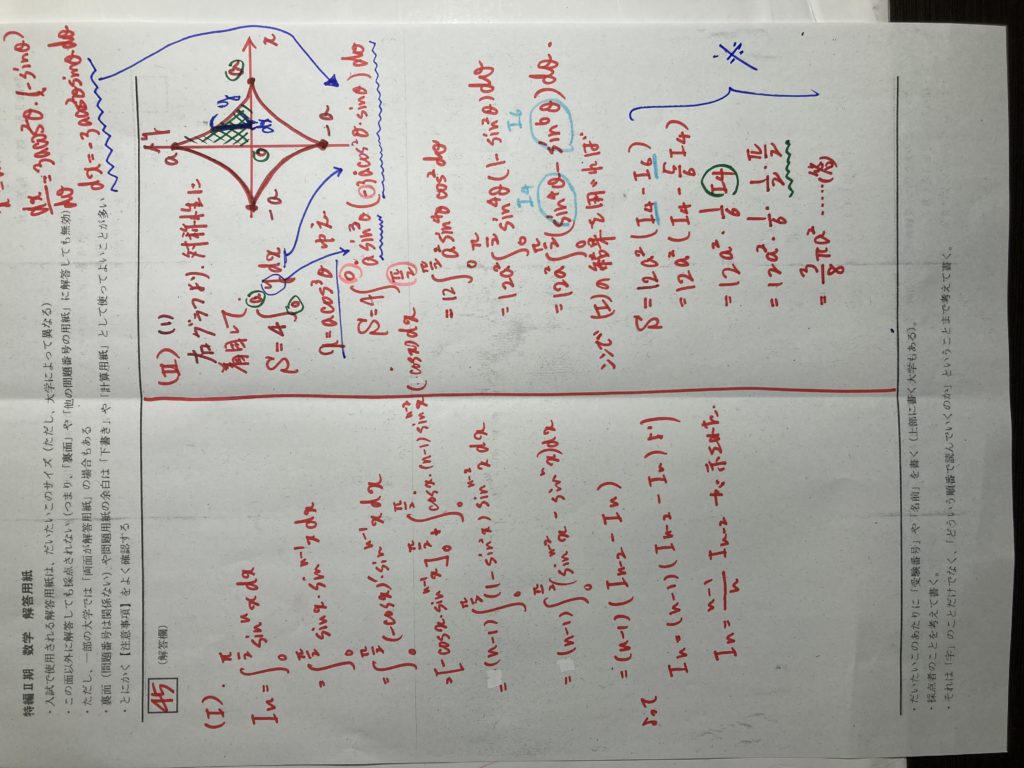 特編Ⅱ期 数学 解答用紙
・入試で使用される解答用紙は、だいたいこのサイズ(ただし、大学によって異なる)
・この面以外に解答しても採点されない(つまり、「裏面」や「他の問題番号の用紙」に解答しても無効)
・ただし、一部の大学では「両面が解答用紙」の場合もある
・裏面(問題番号は関係ない)や問題用紙の余白は「下書き」や「計算用紙」として使ってよいことが多い
・とにかく【注意事項】をよく確認する
45
(解答欄)
(I).
In = ∫₀^{π/2} sinⁿx dx
= ∫₀^{π/2} sinx・sin^{n-1}x dx
= ∫₀^{π/2} (-cosx)' sin^{n-1}x dx
= [-cosx・sin^{n-1}x]₀^{π/2} + ∫₀^{π/2} cosx・(n-1) sin^{n-2}x (cosx) dx
= (n-1) ∫₀^{π/2} (1-sin²x) sin^{n-2}x dx
= (n-1) ∫₀^{π/2} (sin^{n-2}x - sinⁿx) dx
= (n-1) (In-2 - In)
よって
In = (n-1) (In-2 - In) より
In = n-1/n In-2 が示された.
(II) (1)
右グラフより、対称性に
着目して
S = 4∫₀^a y dx
x = a cos³θ
dx/dθ = 3a cos²θ・(-sinθ)
dx = -3a cos²θ sinθ dθ
y
a
x
a
-a
-a
0
S = 4∫ a sin³θ (-3a cos²θ・sinθ) dθ
= 12∫₀^{π/2} a² sin⁴θ cos²θ dθ
= 12a² ∫₀^{π/2} sin⁴θ (1-sin²θ) dθ
I4 I6
= 12a² ∫₀^{π/2} (sin⁴θ - sin⁶θ) dθ.
ここで (I) の結果を用いれば
S = 12a² (I4 - I6)
= 12a² (I4 - 5/6 I4)
= 12a²・1/6 I4
= 12a²・1/6・1/2・π/2
= 3/8 πa² ……(答)
※
・だいたいこのあたりに「受験番号」や「名前」を書く(上部に書く大学もある)。
・採点者のことを考えて書く。
・それは「字」のことだけでなく、「どういう順番で読んでいくのか」ということまで考えて書く。